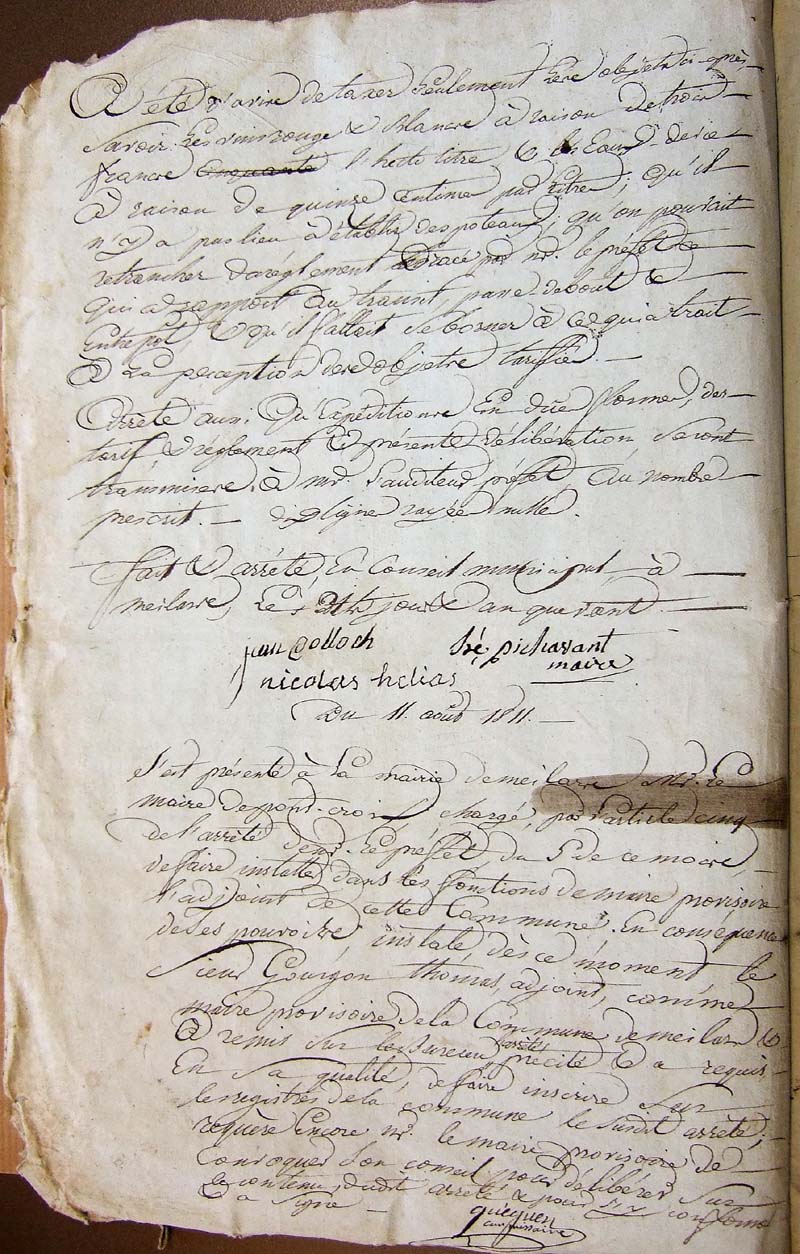 A été d'avis de taxer seulement les objets ci-après
Savoir, Les vins rouge & Blancs à raison de trois
francs cinquante l'hectolitre & les Eaux-de-vie
à raison de quinze centimes par litre; qu'il
n'y a pas lieu à établir des poteaux; qu'on pouvait
retrancher du réglement tracé par mr. le prefet ce
qui a rapport au transit, passe-debout &
Entrepot, & qu'il fallait se borner à ce qui a trait
à La perception des objets tariffés
Arrête aussi Qu'Expéditions En due forme, des
tarif, & réglement & présente délibération Seront
transmises, à mr. l'auditeur préfet, Au nombre
prescrit. — ligne rayée nulle.
fait & arrêté, En Conseil municipal, à
meilarre, Les jour & an que devant.
jean Colloch hé. pichavant
maire
nicolas helias
Du 11. août 1811.
S'est présenté à La mairie de meilarre Mr. Le
maire de pont-croix, chargé, par l'article cinq
de l'arrêté de mr. Le préfet, du 5 de ce mois,
de faire installer dans Les fonctions de maire provisoire
l'adjoint de cette Commune. En conséquence
de ses pouvoirs, installé dès ce moment le
Sieur Gourgon thomas, adjoint, comme
maire provisoire de la Commune de meilarre &
a remis Sur le Bureau l'arrêté précité & a requis,
En Sa qualité, de faire inscrire Sur
les registres de la commune le susdit arrêté;
requère Encore mr. le maire provisoire de
convoquer Son conseil pour délibérer Sur
le contenu dudit arrêté & pour s'y conformer
& a Signé
queguen
commissaire